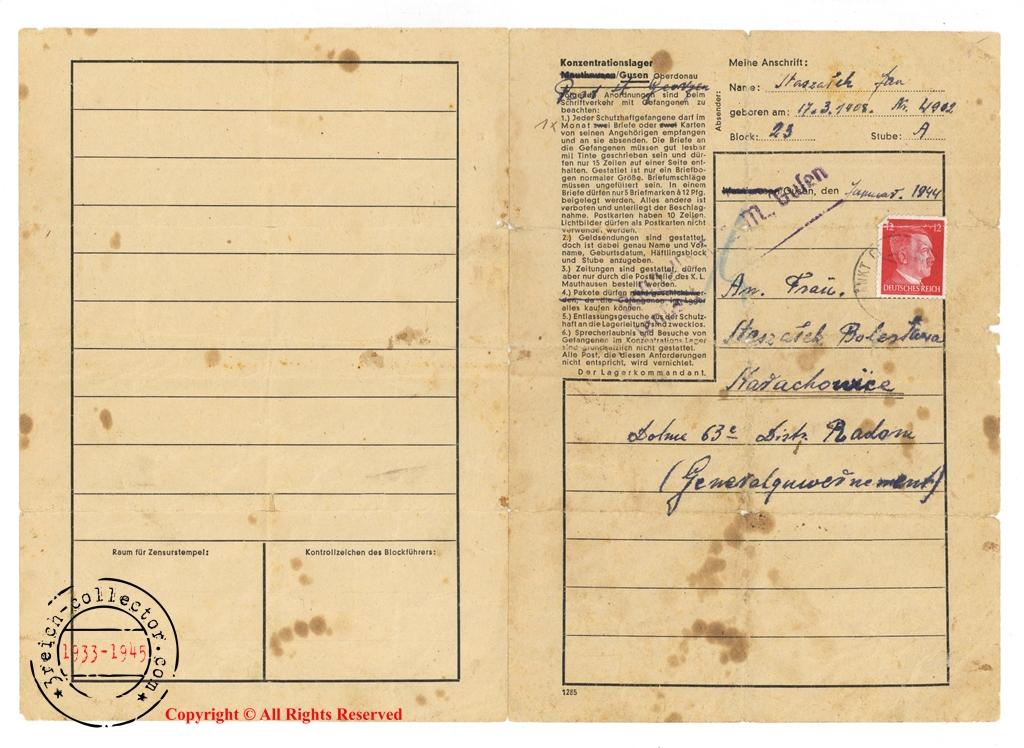 Raum für Zensurstempel:
Kontrollzeichen des Blockführers:
3reich-collector.com
1933-1945
Copyright © All Rights Reserved
Konzentrationslager
Mauthausen/Gusen Oberdonau
Post St Georgen
Folgende Anordnungen sind beim
Schriftverkehr mit Gefangenen zu
beachten:
1.) Jeder Schutzhaftgefangene darf im
1x Monat zwei Briefe oder zwei Karten
von seinen Angehörigen empfangen
und an sie absenden. Die Briefe an
die Gefangenen müssen gut lesbar
mit Tinte geschrieben sein und dür-
fen nur 15 Zeilen auf einer Seite ent-
halten. Gestattet ist nur ein Briefbo-
gen normaler Größe. Briefumschläge
müssen ungefüttert sein. In einem
Briefe dürfen nur 5 Briefmarken à 12 Pfg.
beigelegt werden. Alles andere ist
verboten und unterliegt der Beschlag-
nahme. Postkarten haben 10 Zeilen.
Lichtbilder dürfen als Postkarten nicht
verwendet werden.
2.) Geldsendungen sind gestattet,
doch ist dabei genau Name und Vor-
name, Geburtsdatum, Häftlingsblock
und Stube anzugeben.
3.) Zeitungen sind gestattet, dürfen
aber nur durch die Poststelle des K. L.
Mauthausen bestellt werden.
4.) Pakete dürfen nicht geschickt wer-
den, da die Gefangenen im Lager
alles kaufen können.
5.) Entlassungsgesuche aus der Schutz-
haft an die Lagerleitung sind zwecklos.
6.) Sprecherlaubnis und Besuche von
Gefangenen im Konzentrations-Lager
sind grundsätzlich nicht gestattet.
Alle Post, die diesen Anforderungen
nicht entspricht, wird vernichtet.
Der Lagerkommandant.
Absender:
Meine Anschrift:
Name: Staszałek Jan
geboren am: 17.3.1908. Nr. 4902
Block: 23 Stube: A
Gusen, den Januar. 1944
M., Gusen
12 12
DEUTSCHES REICH
An. Frau.
Staszałek
Dolne 63c Distr. Radom
(Generalguwernement)
1285